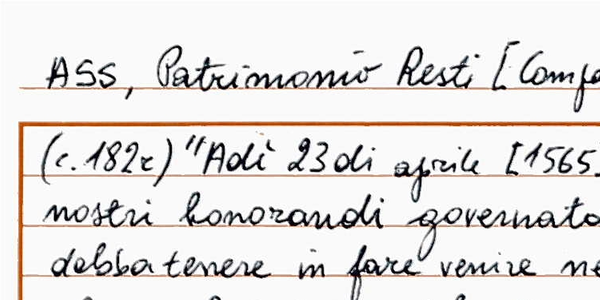 ASS, Patrimonio Resti [Compa
(c.182r) "Adì 23 di aprile [1565.
nostri honorandi governato
debba tenere in fare venire ne